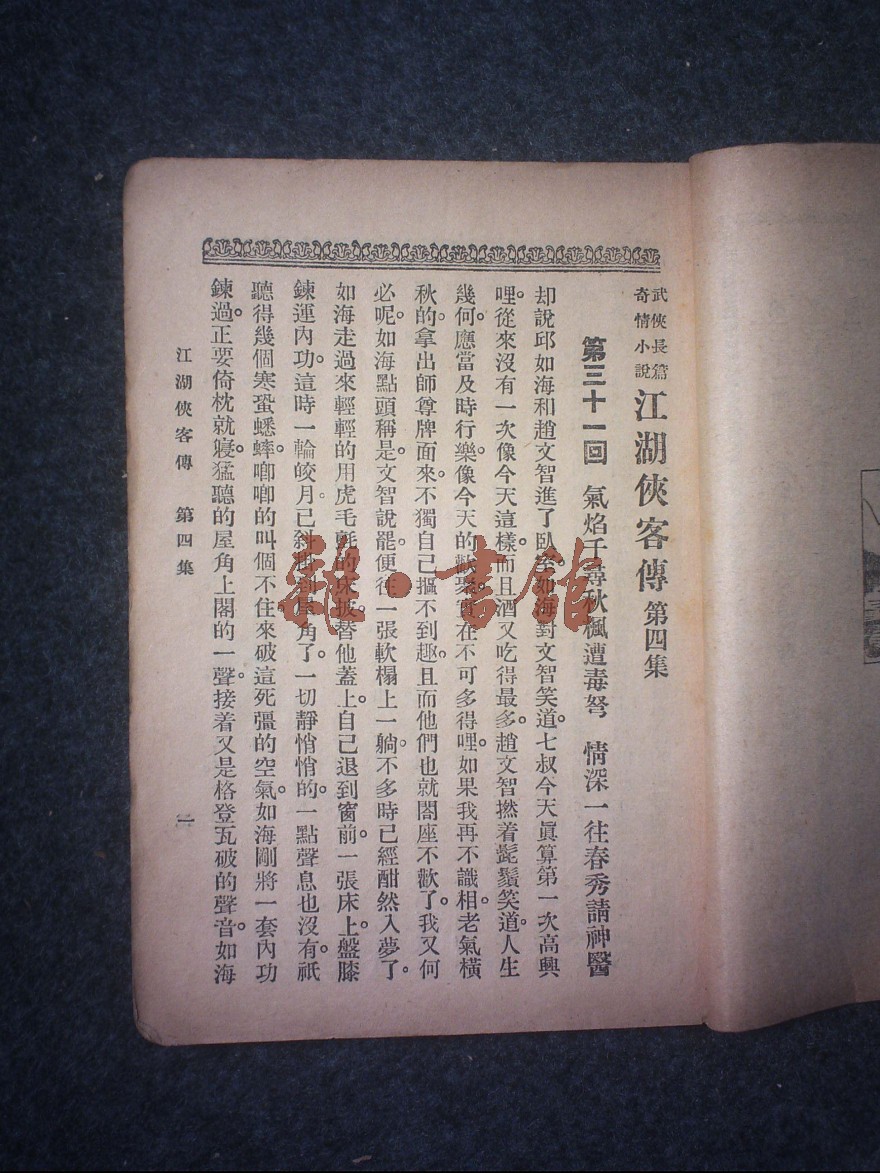 武俠長篇
奇情小說
江湖俠客傳 第四集
第三十一回 氣焰千尋秋楓遭毒弩 情深一往春秀請神醫
却說邱如海和趙文智進了臥室。如海對文智笑道。七叔今天眞算第一次高興
哩。從來沒有一次像今天這樣。而且酒又吃得最多。趙文智撚着髭鬚笑道。人生
幾何。應當及時行樂。像今天的歡聚。實在不可多得哩。如果我再不識相。老氣橫
秋的。拿出師尊牌面來。不獨自己搵不到趣。且而他們也就閤座不歡了。我又何
必呢。如海點頭稱是。文智說罷。便往一張軟榻上一躺。不多時已經酣然入夢了。
如海走過來輕輕的用虎毛氈的床披。替他蓋上。自己退到窗前。一張床上。盤膝
鍊運內功。這時一輪皎月。已斜掛到屋角了。一切靜悄悄的。一點聲息也沒有。祇
聽得幾個寒蛩蟋蟀。啷啷的叫個不住。來破這死彊的空氣。如海剛將一套內功
鍊過。正要倚枕就寢。猛聽的屋角上閣的一聲。接着又是格登瓦破的聲音。如海
江湖俠客傳 第四集
一
雜·書館